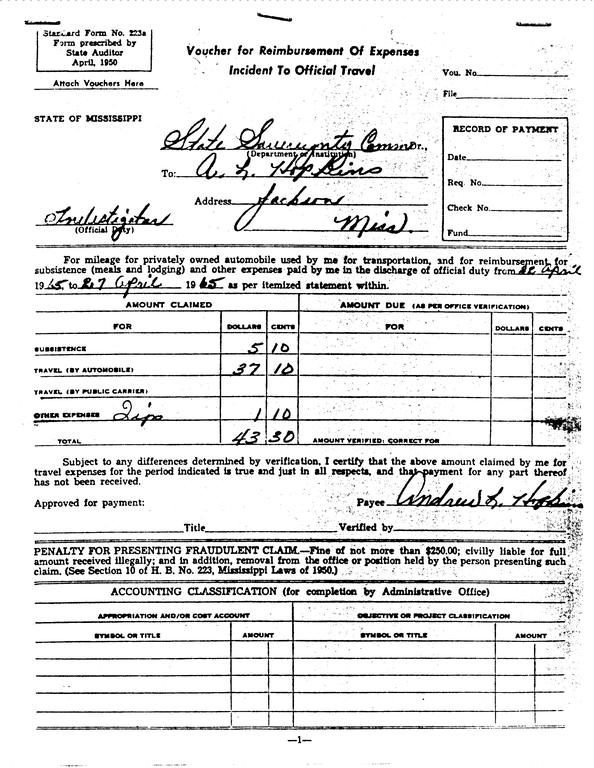 Standard Form No. 223a
Form prescribed by
State Auditor
April, 1950
Attach Vouchers Here
Voucher for Reimbursement Of Expenses
Incident To Official Travel
Vou. No.
File
STATE OF MISSISSIPPI
State Sovereignty Commr.,
(Department or Institution)
To: A. L. Hopkins
Address Jackson
Miss.
Investigator
(Official Duty)
RECORD OF PAYMENT
Date
Req. No.
Check No.
Fund
For mileage for privately owned automobile used by me for transportation, and for reimbursement for
subsistence (meals and lodging) and other expenses paid by me in the discharge of official duty from 22 April
1965 to 27 April 1965 as per itemized statement within.
AMOUNT CLAIMED AMOUNT DUE (AS PER OFFICE VERIFICATION)
FOR DOLLARS CENTS FOR DOLLARS CENTS
SUBSISTENCE 5 10
TRAVEL (BY AUTOMOBILE) 37 10
TRAVEL (BY PUBLIC CARRIER)
OTHER EXPENSES Tips 1 10
TOTAL 43 30 AMOUNT VERIFIED: CORRECT FOR
Subject to any differences determined by verification, I certify that the above amount claimed by me for
travel expenses for the period indicated is true and just in all respects, and that payment for any part thereof
has not been received.
Approved for payment: Payee Andrew L. Hopkins
Title Verified by
PENALTY FOR PRESENTING FRAUDULENT CLAIM.—Fine of not more than $250.00; civilly liable for full
amount received illegally; and in addition, removal from the office or position held by the person presenting such
claim. (See Section 10 of H. B. No. 223, Mississippi Laws of 1950.)
ACCOUNTING CLASSIFICATION (for completion by Administrative Office)
APPROPRIATION AND/OR COST ACCOUNT OBJECTIVE OR PROJECT CLASSIFICATION
SYMBOL OR TITLE AMOUNT SYMBOL OR TITLE AMOUNT
—1—